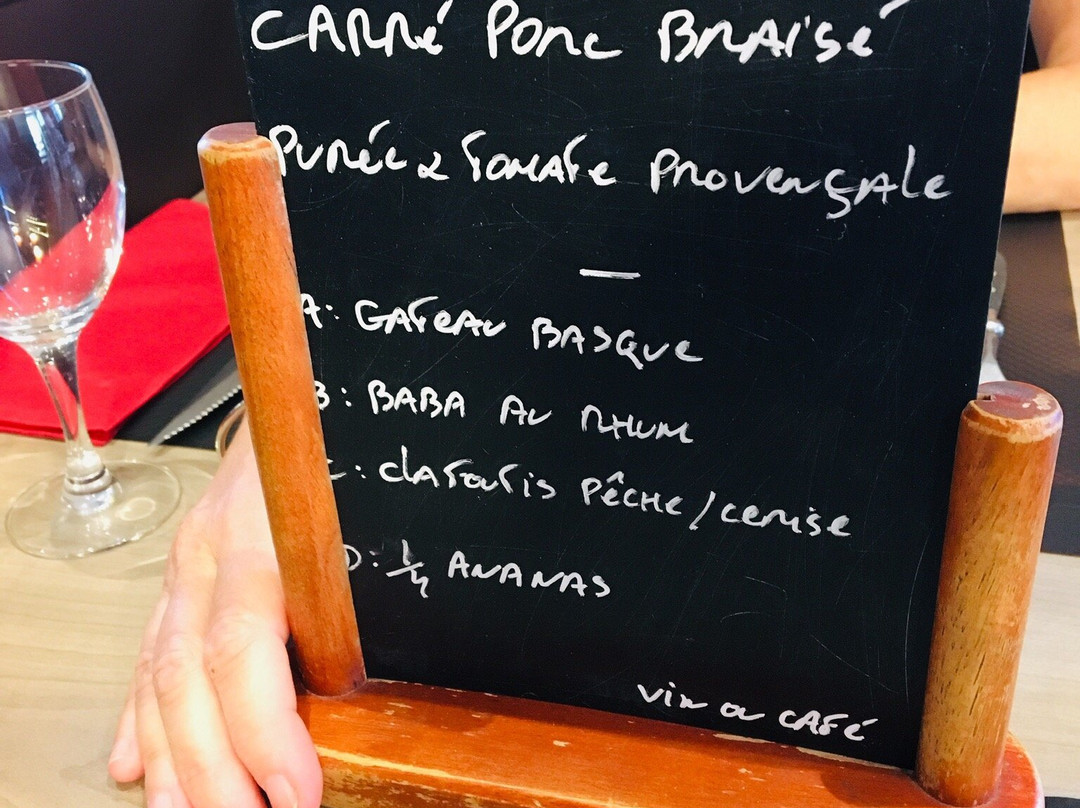 CARRÉ PORC BRAISÉ
PURÉE & TOMATE PROVENÇALE
—
A: GATEAU BASQUE
B: BABA AU RHUM
C: CLAFOUTIS PÊCHE / CERISE
D: 1/4 ANANAS
VIN OU CAFÉ